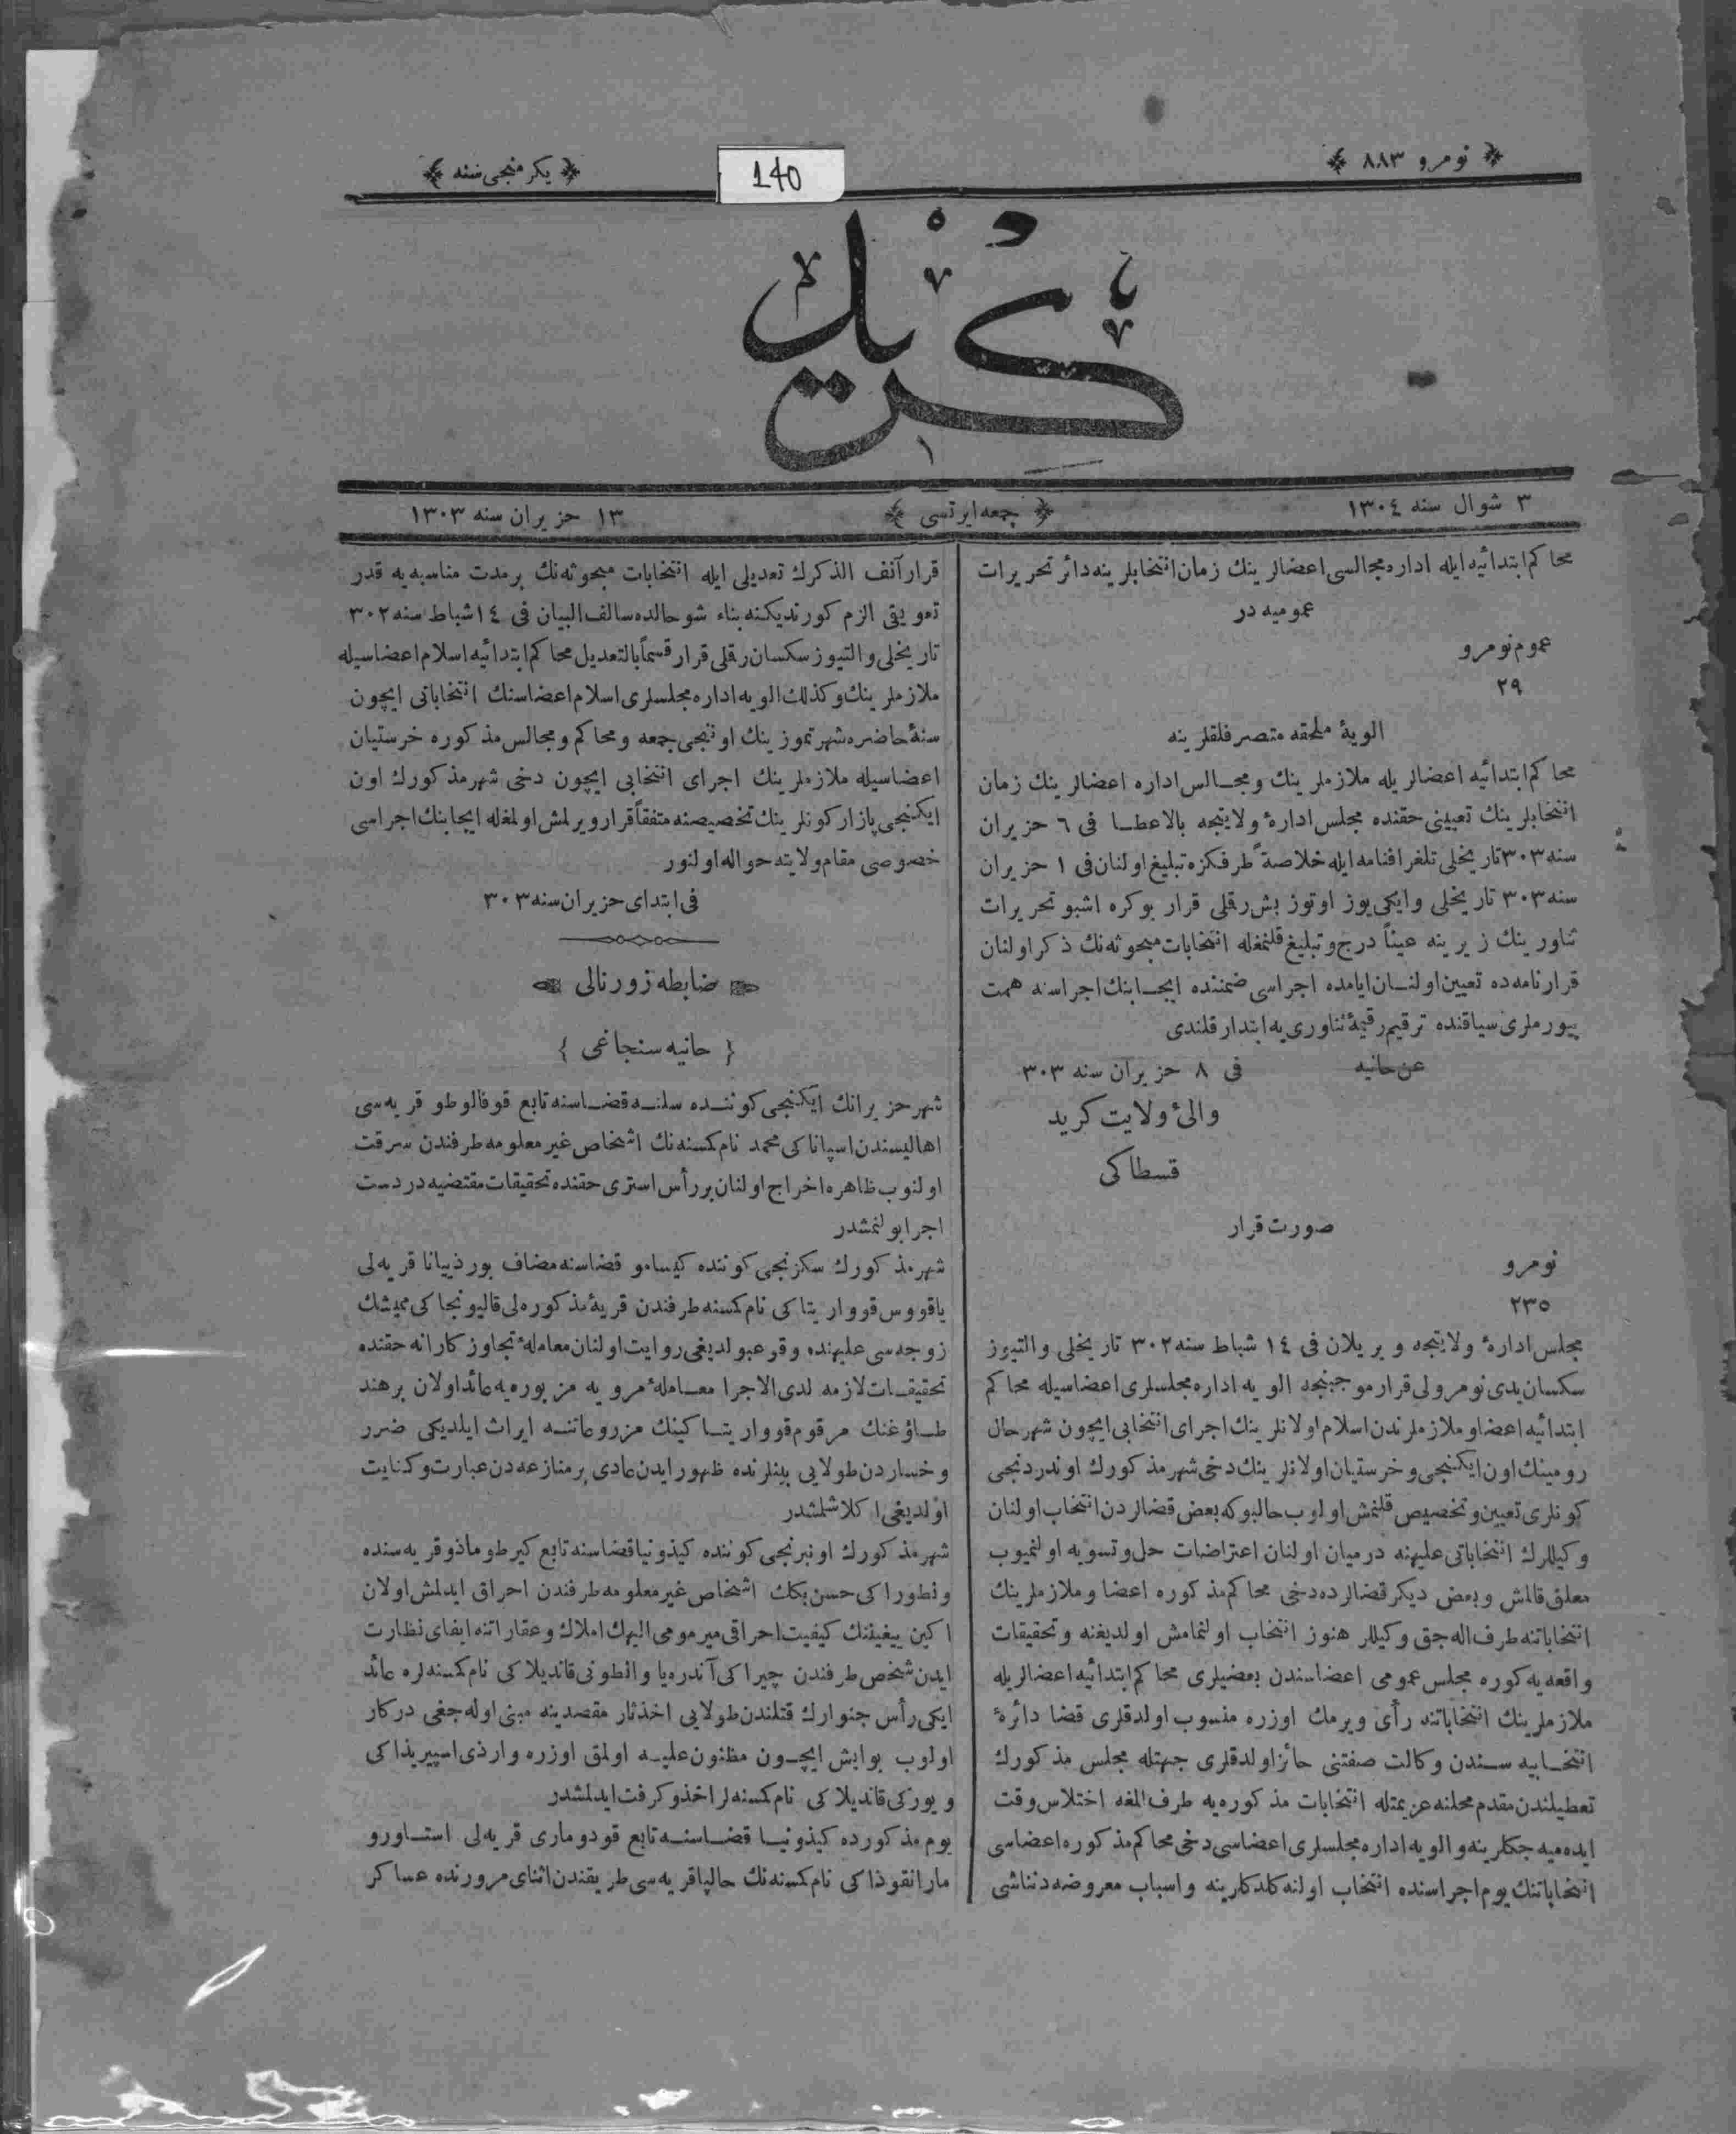 نومرو ٨٨٣
140
يكرمنجى سنه
كريد
٣ شوال سنه ١٣٠٤
جمعه ايرتسى
١٣ حزيران سنه ١٣٠٣
محاكم ابتدائيه ايله اداره مجالسى اعضالرينك زمان انتخابلرينه دائر تحريرات
عموميه در
عموم نومرو
٢٩
الويۀ ملحقه متصرفلقلرينه
محاكم ابتدائيه اعضالريله ملازملرينك ومجالس اداره اعضالرينك زمان
انتخابلرينك تعيينى حقنده مجلس ادارۀ ولايتجه بالاعطا فى ٦ حزيران
سنه ٣٠٣ تاريخلى تلغرافنامه ايله خلاصةً طرفكزه تبليغ اولنان فى ١ حزيران
سنه ٣٠٣ تاريخلى وايكى يوز اوتوز بش رقلى قرار بوكره اشبو تحريرات
ثناورينك زيرينه عيناً درج وتبليغ قلنمغله انتخابات مبحوثه نك ذكر اولنان
قرارنامه ده تعيين اولنان ايامده اجراسى ضمننده ايجابنك اجراسنه همت
بيورملرى سياقنده ترقيم رقيمۀ ثناورى يه ابتدار قلندى
عن حانيه فى ٨ حزيران سنه ٣٠٣
والئ ولايت كريد
قسطاكى
صورت قرار
نومرو
٢٣٥
مجلس ادارۀ ولايتجه ويريلان فى ١٤ شباط سنه ٣٠٢ تاريخلى والتيوز
سكسان يدى نومرولى قرار موجبنجه الويه اداره مجلسلرى اعضاسيله محاكم
ابتدائيه اعضا وملازملرندن اسلام اولانلرينك اجراى انتخابى ايچون شهر حال
رومينك اون ايكنجى وخرستيان اولانلرينك دخى شهر مذكورك اوندردنجى
كونلرى تعيين وتخصيص قلنمش اولوب حالبوكه بعض قضالردن انتخاب اولنان
وكيللرك انتخاباتى عليهنه درميان اولنان اعتراضات حل وتسويه اولنميوب
معلق قالمش وبعض ديكر قضالرده دخى محاكم مذكوره اعضا وملازملرينك
انتخاباتنه طرف اله جق وكيللر هنوز انتخاب اولنمامش اولديغنه وتحقيقات
واقعه يه كوره مجلس عمومى اعضاسندن بعضيلرى محاكم ابتدائيه اعضالريله
ملازملرينك انتخاباتنه رأى ويرمك اوزره منسوب اولدقلرى قضا دائرۀ
انتخابيه سندن وكالت صفتنى حائز اولدقلرى جهتله مجلس مذكورك
تعطيلندن مقدم محلنه عزيمتله انتخابات مذكوره يه طرف المغه اختلاس وقت
ايده ميه جكلرينه والويه اداره مجلسلرى اعضاسى دخى محاكم مذكوره اعضاسى
انتخاباتنك يوم اجراسنده انتخاب اولنه كلدكلرينه واسباب معروضه دن ناشى
قرار آنف الذكرك تعديلى ايله انتخابات مبحوثه نك برمدت مناسبه يه قدر
تعويقى الزم كورنديكنه بناء شو حالده سالف البيان فى ١٤ شباط سنه ٣٠٢
تاريخلى والتيوز سكسان رقلى قرار قسماً بالتعديل محاكم ابتدائيه اسلام اعضاسيله
ملازملرينك وكذلك الويه اداره مجلسلرى اسلام اعضاسنك انتخاباتى ايچون
سنۀ حاضره شهر تموزينك اوننجى جمعه ومحاكم ومجالس مذكوره خرستيان
اعضاسيله ملازملرينك اجراى انتخابى ايچون دخى شهر مذكورك اون
ايكنجى پازار كونلرينك تخصيصنه متفقاً قرار ويرلمش اولمغله ايجابنك اجراسى
خصوصى مقام ولايته حواله اولنور
فى ابتداى حزيران سنه ٣٠٣
ضابطه زورنالى
{ حانيه سنجاغى }
شهر حزيرانك ايكنجى كوننده سلنه قضاسنه تابع قوفالوطو قريه سى
اهاليسندن اسپاناكى محمد نام كمسنه نك اشخاص غير معلومه طرفندن سرقت
اولنوب ظاهره اخراج اولنان بررأس استرى حقنده تحقيقات مقتضيه دردست
اجرا بولنمشدر
شهر مذكورك سكزنجى كوننده كيسامو قضاسنه مضاف بورذييانا قريه لى
ياقووس قوواريتاكى نام كمسنه طرفندن قريۀ مذكوره لى قاليونجاكى ميمشك
زوجه سى عليهنده وقوعبولديغى روايت اولنان معاملۀ تجاوزكارانه حقنده
تحقيقات لازمه لدى الاجرا معاملۀ مرويه مزبوره يه عائد اولان برهند
طاؤغنك مرقوم قوواريتاكينك مزروعاتنه ايراث ايلديكى ضرر
وخساردن طولايى بينلرنده ظهور ايدن عادى برمنازعه دن عبارت وكنايت
اولديغى اكلاشلمشدر
شهر مذكورك اونبرنجى كوننده كيذونيا قضاسنه تابع كيرطوماذو قريه سنده
ونطوراكى حسن بكك اشخاص غير معلومه طرفندن احراق ايدلمش اولان
اكين ييغيننك كيفيت احراقى ميرمومى اليهك املاك وعقاراتنه ايفاى نظارت
ايدن شخص طرفندن چيراكى آندره يا وانطونى قانديلاكى نام كمسنه لره عائد
ايكى رأس جنوارك قتلندن طولايى اخذثار مقصدينه مبنى اوله جغى دركار
اولوب بوايش ايچون مظنون عليه اولمق اوزره وارذى اسپيريذاكى
ويوركى قانديلاكى نام كمسنه لر اخذ وكرفت ايدلمشدر
يوم مذكورده كيذونيا قضاسنه تابع قودومارى قريه لى استاورو
مارانقوذاكى نام كمسنه نك حالپا قريه سى طريقندن اثناى مرورنده عساكر